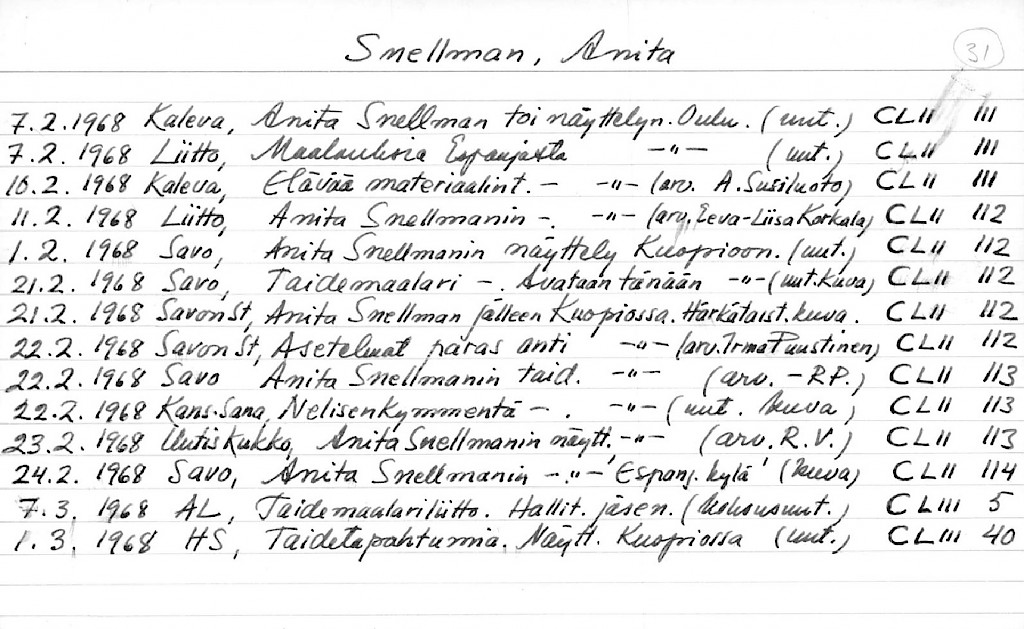 Snellman, Anita
31
7.2.1968 Kaleva, Anita Snellman toi näyttelyn. Oulu. (uut.) CLII 111
7.2.1968 Liitto, Maalauksia Espanjasta —"— (uut.) CLII 111
10.2.1968 Kaleva, Elävää materiaalint. – —"— (arv. A. Susiluoto) CLII 111
11.2.1968 Liitto, Anita Snellmanin –. —"— (arv. Eeva-Liisa Korkala) CLII 112
1.2.1968 Savo, Anita Snellmanin näyttely Kuopioon. (uut.) CLII 112
21.2.1968 Savo, Taidemaalari –. Avataan tänään —"— (uut. kuva) CLII 112
21.2.1968 Savon St, Anita Snellman jälleen Kuopiossa. Härkätaist. kuva. CLII 112
22.2.1968 Savon St, Asetelmat paras anti —"— (arv. Irma Puustinen) CLII 112
22.2.1968 Savo Anita Snellmanin taid. —"— (arv. –RP.) CLII 113
22.2.1968 Kans. Sana, Nelisenkymmentä –. —"— (uut. kuva) CLII 113
23.2.1968 UutisKukko, Anita Snellmanin näytt. —"— (arv. R.V.) CLII 113
24.2.1968 Savo, Anita Snellmanin –. —"— 'Espanj. kylä' (kuva) CLII 114
7.3.1968 AL, Taidemaalariliitto. Hallit. jäsen. (kokousuut.) CLIII 5
1.3.1968 HS, Taidetapahtumia. Näytt. Kuopiossa (uut.) CLIII 40